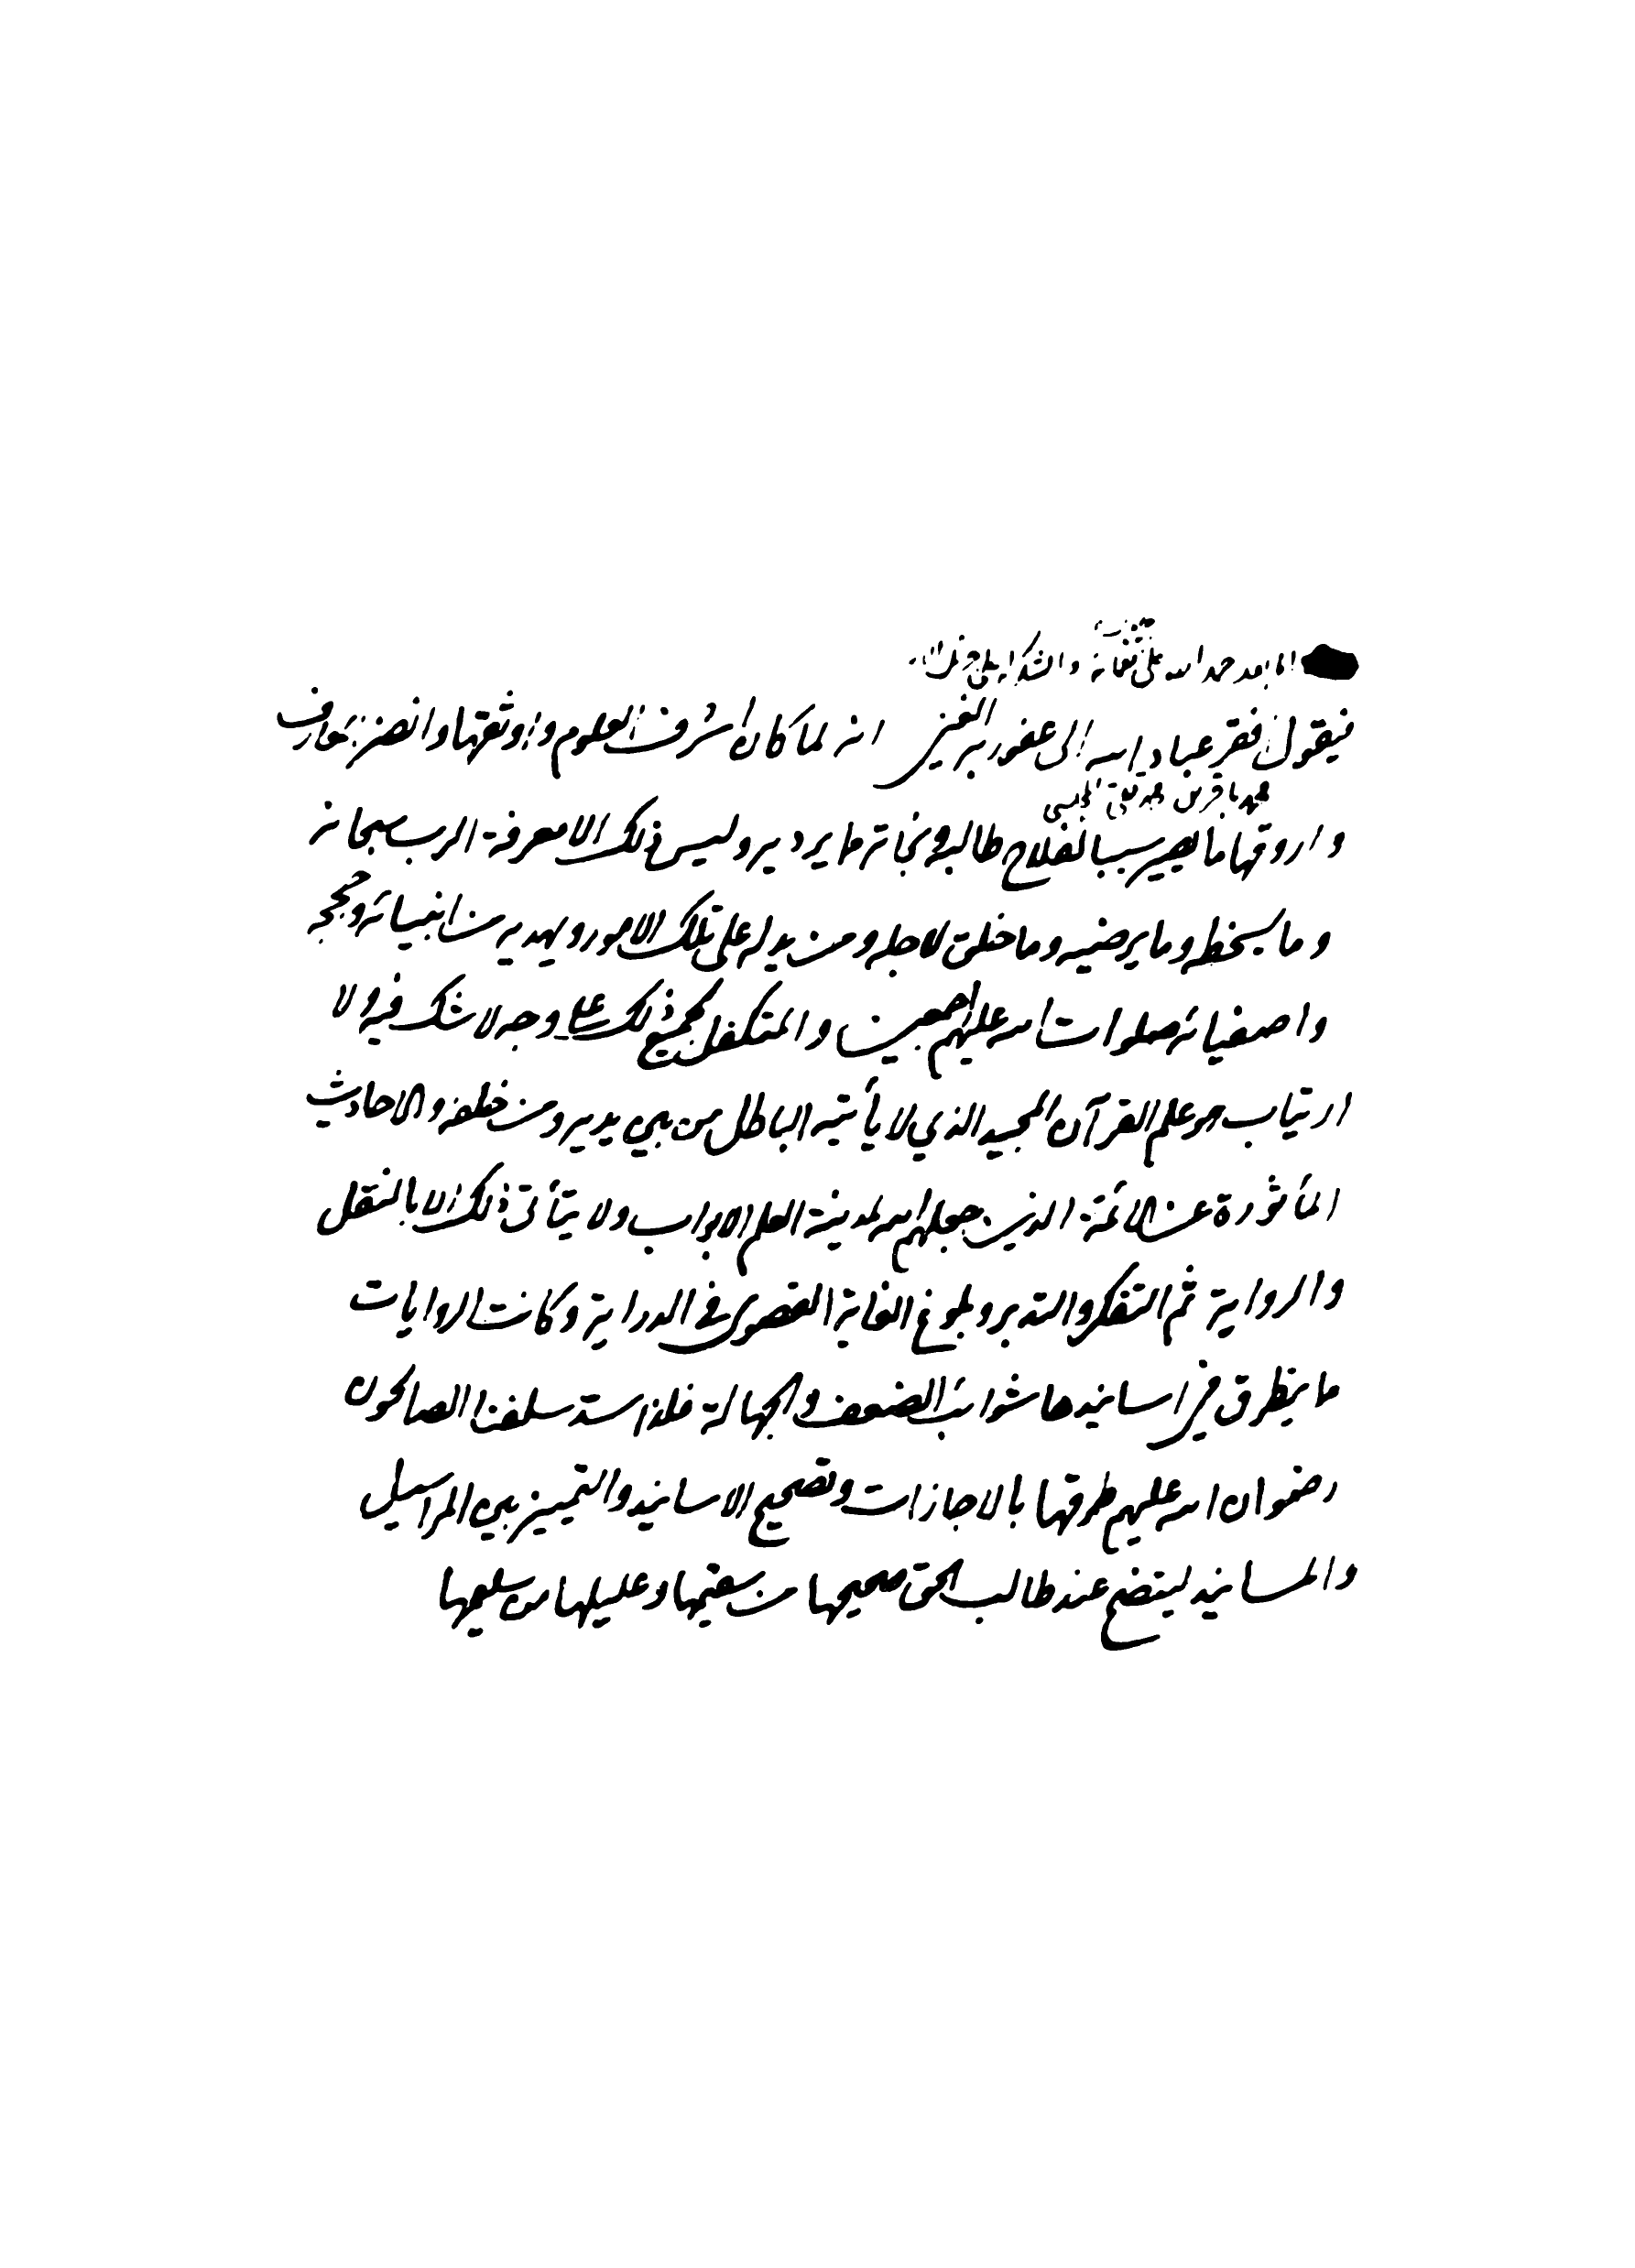 اما بعد حمد الله على نعمائه والشكر له على
فيقول افقر عباد الله الى عفو ربه الغني انه لما كان اشرف العلوم واوثقها وانضر المعارف
محمد باقر بن محمد تقي المجلسي
واروقها ما يصير سببا لفلاح طالبه ونجاته مما يرديه وليس ذلك الا معرفة الرب سبحانه
وما يسخطه وما يرضيه وما خلق لاجله ومن يدله على تلك الامور ويهديه من انبيائه وحججه
واصفيائه صلوات الله عليهم اجمعين والمتكفل بجميع ذلك على وجه لا شك فيه ولا
ارتياب هو علم القرآن المجيد الذي لا يأتيه الباطل من بين يديه ومن خلفه والاحاديث
المأثورة عن الائمة الذين جعلهم الله لمدينة العلم الابواب ولا يتأتى ذلك الا بالنقل
والرواية ثم التفكر والتدبر وبلوغ الغاية القصوى في الدراية وكانت الروايات
مما يتطرق في اسانيدها شوائب الضعف والجهالة فلذا سدد سلفنا الصالحون
رضوان الله عليهم طرقها بالاجازات وتصحيح الاسانيد والتمييز بين المراسيل
والمسانيد ليتضح عند طالب الحق صحيحها من سقيمها وعليلها من سليمها